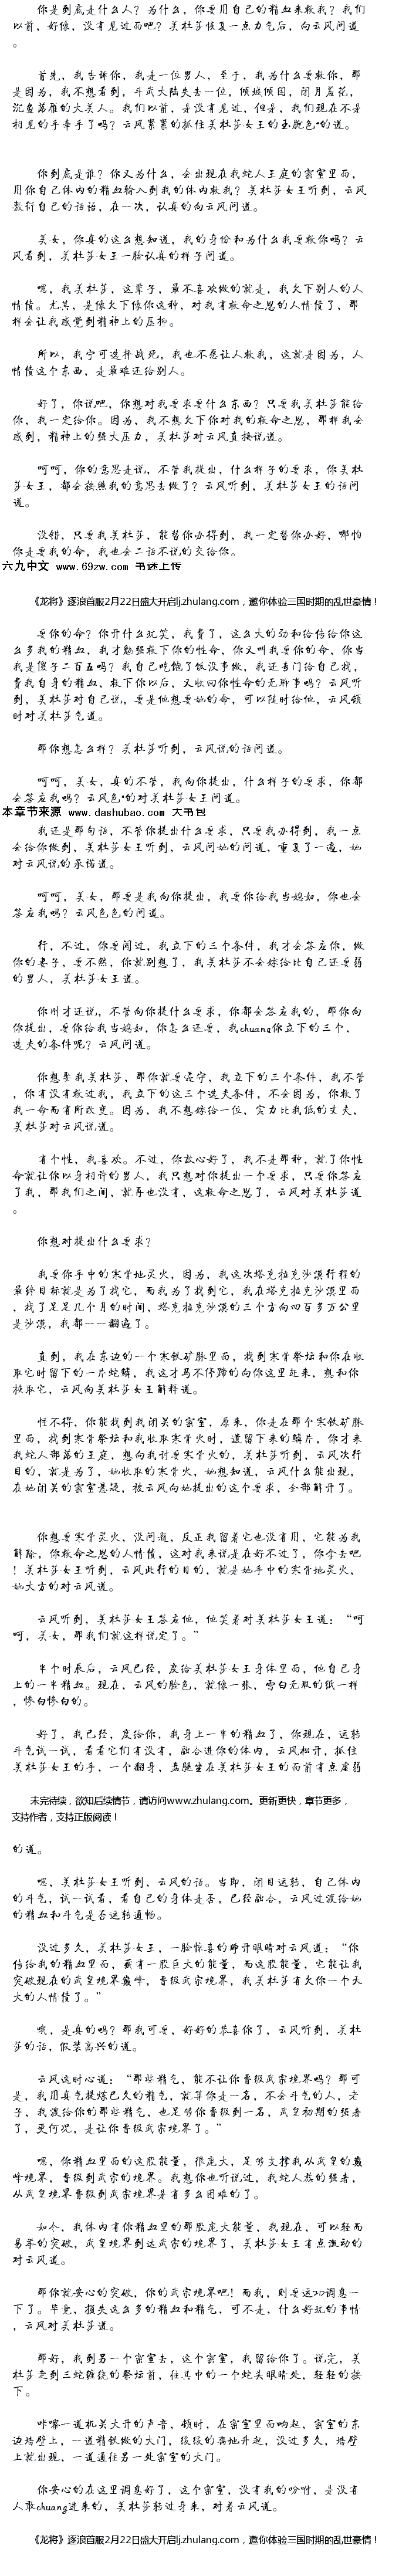 你是到底是什么人？为什么，你要用自己的精血来救我？我们
以前，好像，没有见过面吧？美杜莎恢复一点力气后，向云风问道
。
首先，我告诉你，我是一位男人，至于，我为什么要救你，那
是因为，我不想看到，斗武大陆失去一位，倾城倾国，闭月羞花，
沉鱼落雁的大美人。我们以前，是没有见过，但是，我们现在不是
相见的手牵手了吗？云风紧紧的抓住美杜莎女王的玉腕色*的道。
你到底是谁？你又为什么，会出现在我蛇人王庭的密室里面，
用你自己体内的精血输入到我的体内救我？美杜莎女王听到，云风
敷衍自己的话语，在一次，认真的向云风问道。
美女，你真的这么想知道，我的身份和为什么我要救你吗？云
风看到，美杜莎女王一脸认真的样子问道。
嗯，我美杜莎，这辈子，最不喜欢做的就是，我欠下别人的人
情债。尤其，是像欠下像你这种，对我有救命之恩的人情债了，那
样会让我感觉到精神上的压抑。
所以，我宁可选择战死，我也不忍让人救我，这就是因为，人
情债这个东西，是最难还给别人。
好了，你说吧，你想对我要求要什么东西？只要我美杜莎能给
你，我一定给你。因为，我不想欠下你对我的救命之恩，那样我会
感到，精神上的强大压力，美杜莎对云风直接说道。
呵呵，你的意思是说，不管我提出，什么样子的要求，你美杜
莎女王，都会按照我的意思去做了？云风听到，美杜莎女王的话问
道。
没错，只要我美杜莎，能替你办得到，我一定替你办好，哪怕
你是要我的命，我也会二话不说的交给你。
六九中文 www.69zw.com 书迷上传
《龙将》逐浪首服2月22日盛大开启lj.zhulang.com，邀你体验三国时期的乱世豪情！
要你的命？你开什么玩笑，我费了，这么大的劲和给传给你这
么多我的精血，我才勉强救下你的性命，你又叫我要你的命，你当
我是傻子二百五吗？我自己吃饱了饭没事做，我还专门给自己找，
费我自身的精血，救下你以后，又收回你性命的无聊事吗？云风听
到，美杜莎对自己说，要是他想要她的命，可以随时给他，云风顿
时对美杜莎气道。
那你想怎么样？美杜莎听到，云风说的话问道。
呵呵，美女，真的不管，我向你提出，什么样子的要求，你都
会答应我吗？云风色*的对美杜莎女王问道。
本章节来源 www.dashubao.com 大书包
我还是那句话，不管你提出什么要求，只要我办得到，我一点
会给你做到，美杜莎女王听到，云风问她的问道，重复了一遍，她
对云风说的承诺道。
呵呵，美女，那要是我向你提出，我要你给我当媳妇，你也会
答应我吗？云风色色的问道。
行，不过，你要闯过，我立下的三个条件，我才会答应你，做
你的妻子，要不然，你就别想了，我美杜莎不会嫁给比自己还要弱
的男人，美杜莎女王道。
你刚才还说，不管向你提什么要求，你都会答应我的，那你向
你提出，要你给我当媳妇，你怎么还要，我chuang你立下的三个，
选夫的条件呢？云风问道。
你想娶我美杜莎，那你就要遵守，我立下的三个条件，我不管
，你有没有救过我，我立下的这三个选夫条件，不会因为，你救了
我一命而有所改变。因为，我不想嫁给一位，实力比我低的丈夫，
美杜莎对云风说道。
有个性，我喜欢。不过，你放心好了，我不是那种，就了你性
命就让你以身相许的男人，我只想对你提出一个要求，只要你答应
了我，那我们之间，就再也没有，这救命之恩了，云风对美杜莎道
。
你想对提出什么要求？
我要你手中的寒骨地灵火，因为，我这次塔克拉克沙漠行程的
最终目标就是为了找它，而我为了找到它，我在塔克拉克沙漠里面
，找了足足几个月的时间，塔克拉克沙漠的三个方向四百多万公里
是沙漠，我都一一翻遍了。
直到，我在东边的一个寒铁矿脉里面，找到寒骨祭坛和你在收
取它时留下的一片蛇鳞，我这才马不停蹄的向你这里赶来，想和你
换取它，云风向美杜莎女王解释道。
怪不得，你能找到我闭关的密室，原来，你是在那个寒铁矿脉
里面，找到寒骨祭坛和我收取寒骨火时，遗留下来的鳞片，你才来
我蛇人部落的王庭，想向我讨要寒骨火的，美杜莎听到，云风次行
目的，就是为了，她收取的寒骨火，她想知道，云风什么能出现，
在她闭关的密室悬疑，被云风向她提出的这个要求，全部解开了。
你想要寒骨灵火，没问题，反正我留着它也没有用，它能为我
解除，你救命之恩的人情债，这对我来说是在好不过了，你拿去吧
！美杜莎女王听到，云风此行的目的，就是她手中的寒骨地灵火，
她大方的对云风道。
云风听到，美杜莎女王答应他，他笑着对美杜莎女王道：“呵
呵，美女，那我们就这样说定了。”
半个时辰后，云风已经，度给美杜莎女王身体里面，他自己身
上的一半精血。现在，云风的脸色，就像一张，雪白无瑕的纸一样
，惨白惨白的。
好了，我已经，度给你，我身上一半的精血了，你现在，运转
斗气试一试，看看它们有没有，融合进你的体内，云风松开，抓住
美杜莎女王的手，一个翻身，盘腿坐在美杜莎女王的面前有点虚弱
未完待续，欲知后续情节，请访问www.zhulang.com。更新更快，章节更多，
支持作者，支持正版阅读！
的道。
嗯，美杜莎女王听到，云风的话。当即，闭目运转，自己体内
的斗气，试一试看，看自己的身体是否，已经融合，云风过渡给她
的精血和斗气是否运转通畅。
没过多久，美杜莎女王，一脸惊喜的睁开眼睛对云风道：“你
传给我的精血里面，藏有一股巨大的能量，而这股能量，它能让我
突破现在的武皇境界巅峰，晋级武宗境界，我美杜莎有欠你一个天
大的人情债了。”
哦，是真的吗？那我可要，好好的恭喜你了，云风听到，美杜
莎的话，假装高兴的道。
云风这时心道：“那些精气，能不让你晋级武宗境界吗？那可
是，我用真气提炼已久的精气，就算你是一名，不会斗气的人，老
子，我渡给你的那些精气，也足够你晋级到一名，武皇初期的强者
了，更何况，是让你晋级武宗境界了。”
嗯，你精血里面的这股能量，很庞大，足够支撑我从武皇的巅
峰境界，晋级到武宗的境界。我想你也听说过，我蛇人族的强者，
从武皇境界晋级到武宗境界是有多么困难的了。
如今，我体内有你精血里的那股庞大能量，我现在，可以轻而
易举的突破，武皇境界到这武宗的境界了，美杜莎女王有点激动的
对云风道。
那你就安心的突破，你的武宗境界吧！而我，则要运功调息一
下了。毕竟，损失这么多的精血和精气，可不是，什么好玩的事情
，云风对美杜莎道。
那好，我到另一个密室去，这个密室，我留给你了。说完，美
杜莎走到三蛇缠绕的祭坛前，往其中的一个蛇头眼睛处，轻轻的按
下。
咔嚓一道机关大开的声音，顿时，在密室里面响起，密室的东
边墙壁上，一道精铁做的大门，缓缓的离地升起，没过多久，墙壁
上就出现，一道通往另一处密室的大门。
你安心的在这里调息好了，这个密室，没有我的吩咐，是没有
人敢chuang进来的，美杜莎转过身来，对着云风道。
《龙将》逐浪首服2月22日盛大开启lj.zhulang.com，邀你体验三国时期的乱世豪情！